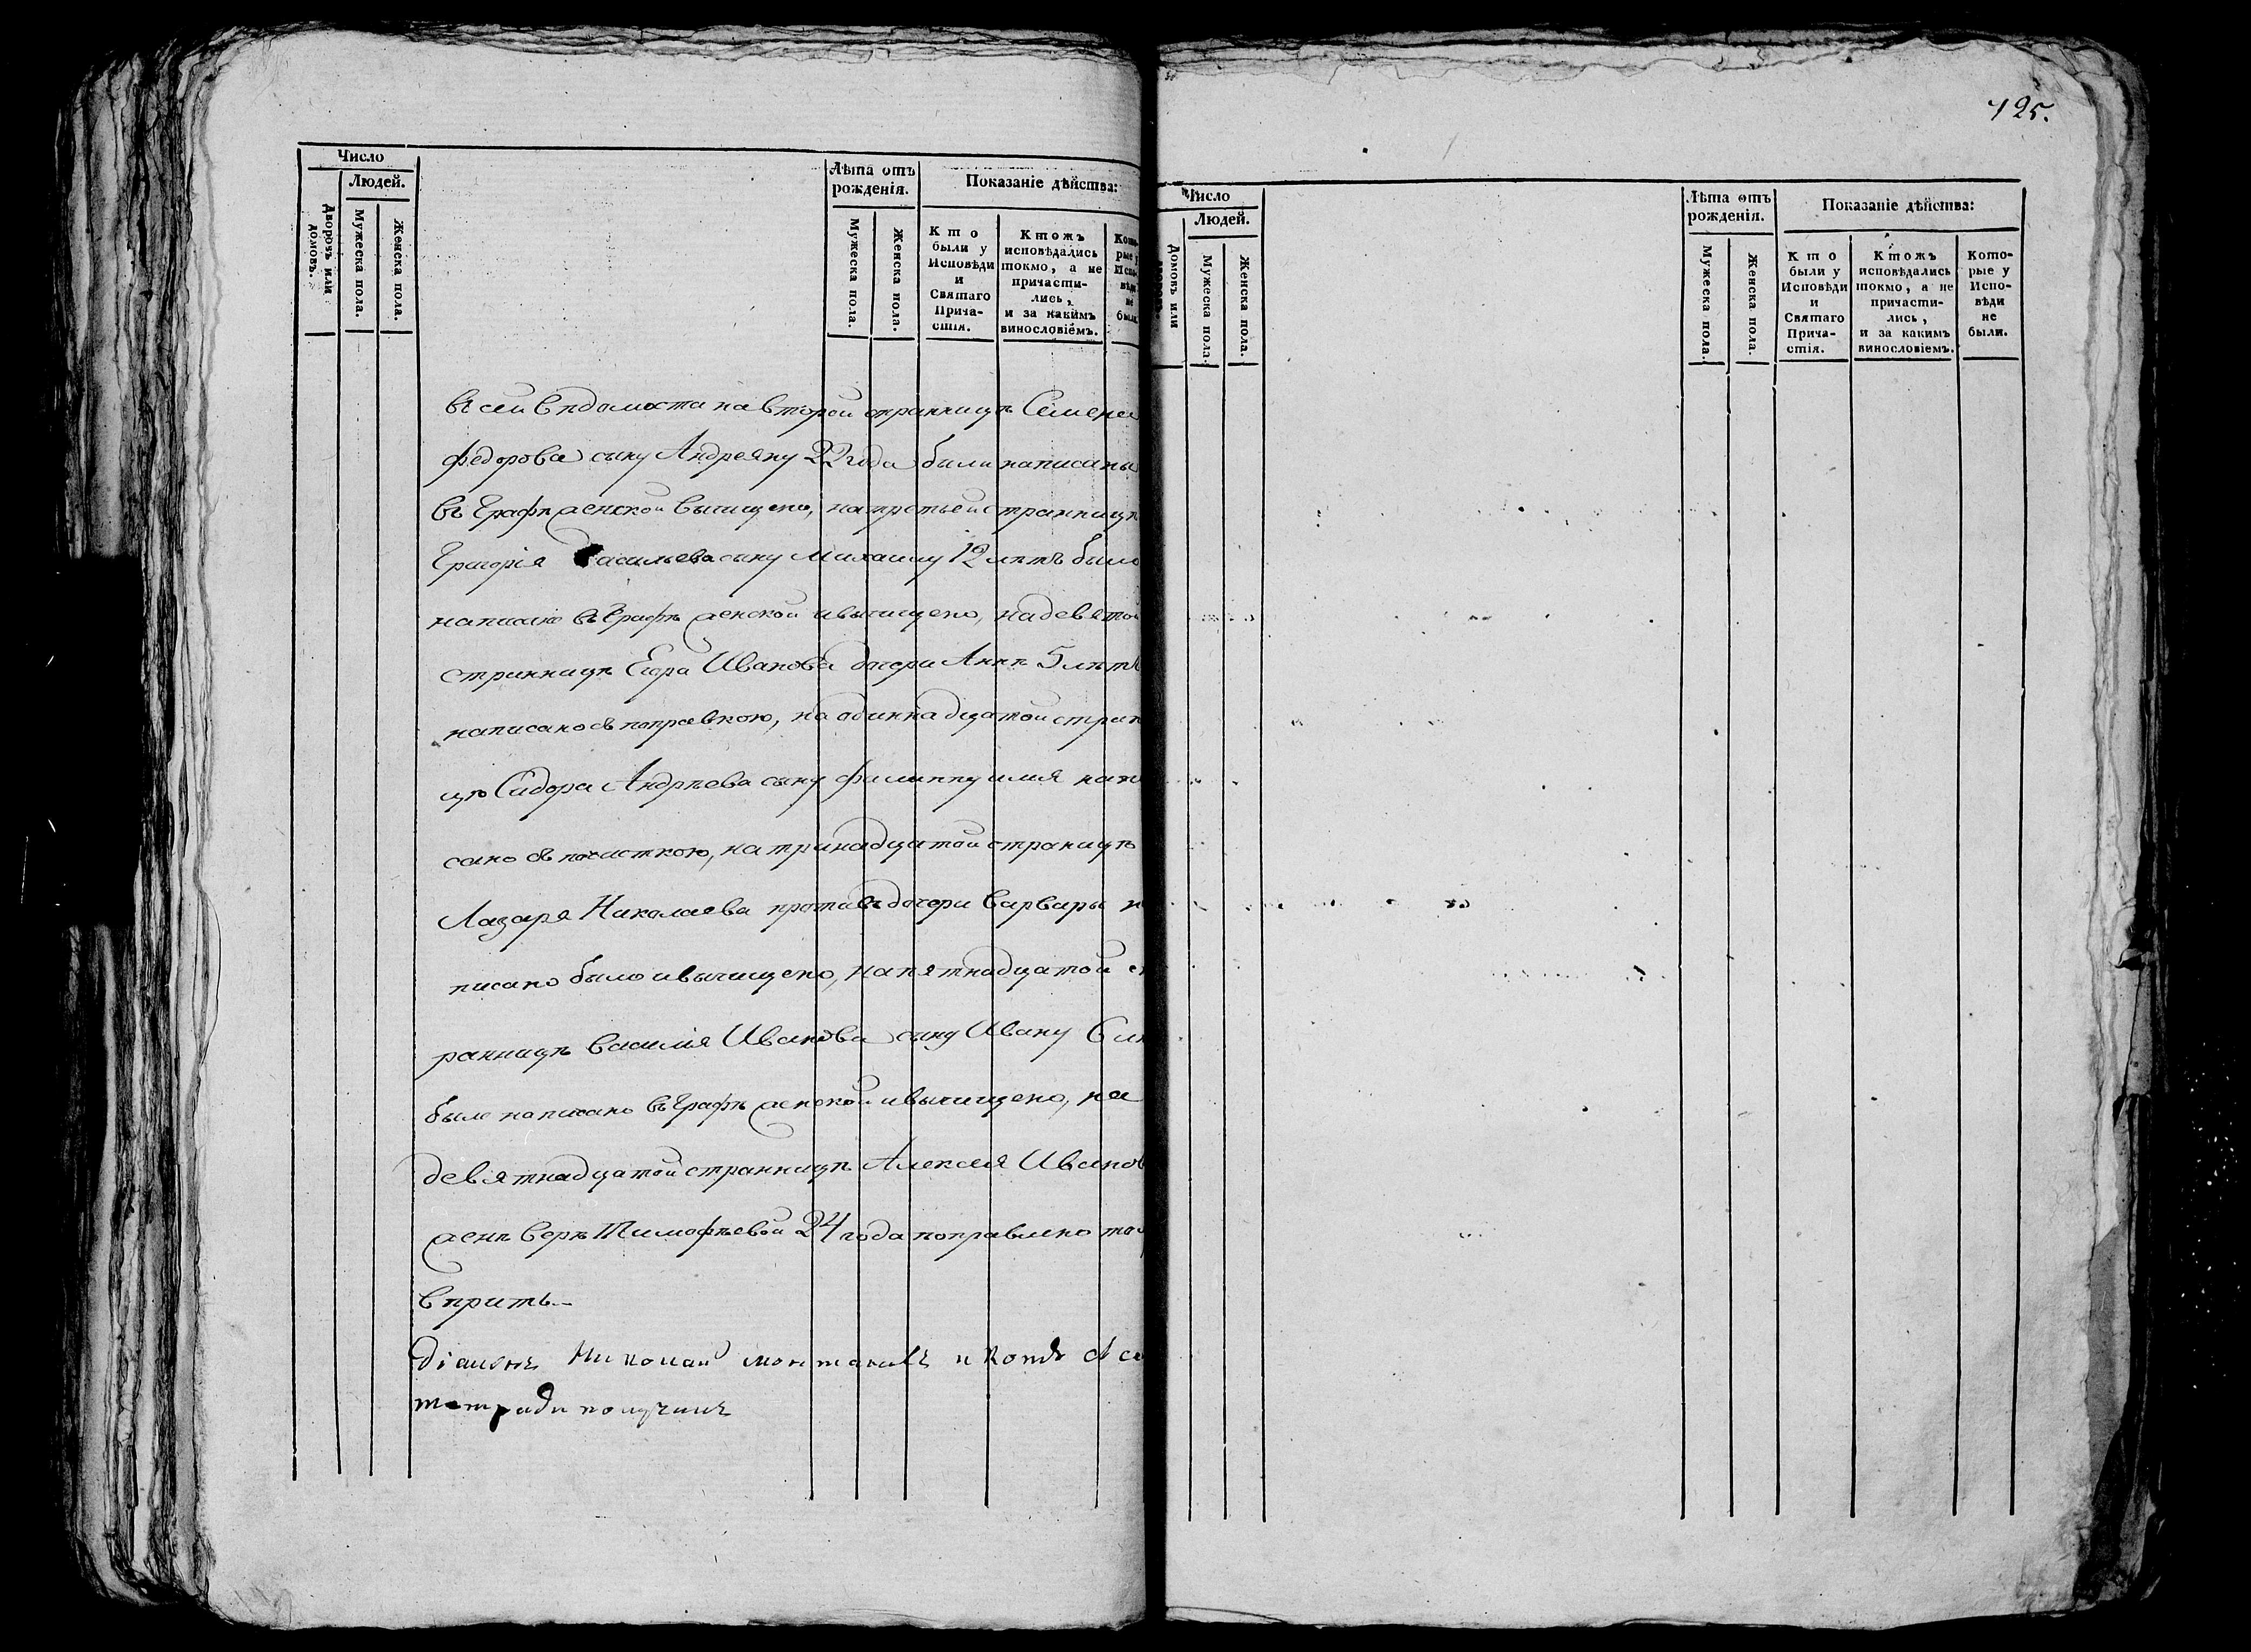 725.
Число
Людей.
Дворовъ или домовъ.
Мужеска пола.
Женска пола.
Лѣта отъ рожденія.
Мужеска пола.
Женска пола.
Показаніе дѣйства:
Кто были у Исповѣди и Святаго Прича-стія.
Ктожъ исповѣдались токмо, а не причасти-лись, и за какимъ винословіемъ.
Кото-рые у Испо-вѣди не были.
въ сей ведомости на второй странницѣ Семена
федорова сыну Андреяну 22 года были написаны
въ графѣ женской вычищено, на третьей странницѣ
Григорія Васильева сыну Михаилу 12 лѣтъ было
написано въ графѣ женской и вычищено, на девятой
странницѣ Егора Иванова дочери Аннѣ 5 лѣтъ
написано съ поправкою, на одиннадцатой стран
цѣ Сидора Андрѣева сыну Филиппу имя напи
сано съ почисткою, на тринадцатой страницѣ
Лазаря Николаева противъ дочери Варвары н
писано было и вычищено, на пятнадцатой ст
ранницѣ Василія Иванова сыну Ивану 6 лѣ
было написано въ графѣ женской и вычищено, на
девятнадцатой странницѣ Алексея Иванов
женѣ Верѣ Тимофѣевой 24 года поправлено то
вѣрить.
діаконъ Николай
тетради получилъ
Число
Людей.
Домовъ или дворовъ.
Мужеска пола.
Женска пола.
Лѣта отъ рожденія.
Мужеска пола.
Женска пола.
Показаніе дѣйства:
Кто были у Исповѣди и Святаго Прича-стія.
Ктожъ исповѣдались токмо, а не причасти-лись, и за какимъ винословіемъ.
Кото-рые у Испо-вѣди не были.